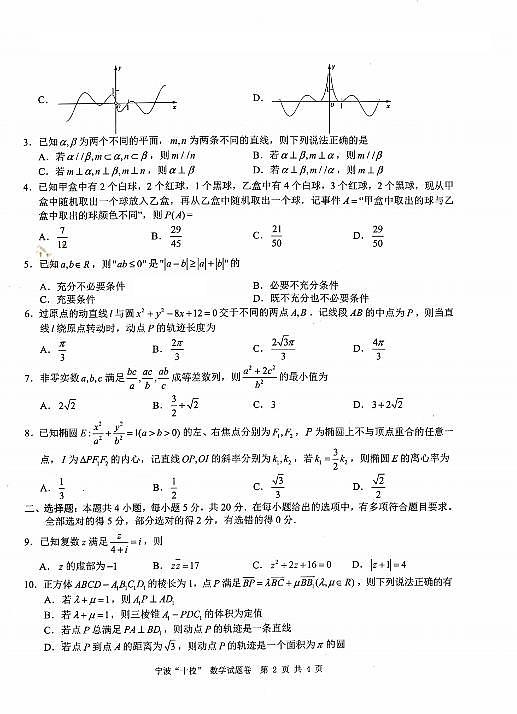 C.
D.
3. 已知 α,β 为两个不同的平面, m,n 为两条不同的直线, 则下列说法正确的是
A. 若 α//β,m⊂α,n⊂β, 则 m//n
B. 若 α⊥β,m⊥α, 则 m//β
C. 若 m⊥α,n⊥β,m⊥n, 则 α⊥β
D. 若 α⊥β,m//α, 则 m⊥β
4. 已知甲盒中有 2 个白球, 2 个红球, 1 个黑球, 乙盒中有 4 个白球, 3 个红球, 2 个黑球, 现从甲
盒中随机取出一个球放入乙盒, 再从乙盒中随机取出一个球. 记事件 A="甲盒中取出的球与乙
盒中取出的球颜色不同", 则 P(A)=
A. 7/12 B. 29/45 C. 21/50 D. 29/50
5. 已知 a,b∈R, 则"ab≤0"是"|a−b|≥|a|+|b|"的
A. 充分不必要条件 B. 必要不充分条件
C. 充要条件 D. 既不充分也不必要条件
6. 过原点的动直线 l 与圆 x²+y²−8x+12=0 交于不同的两点 A,B. 记线段 AB 的中点为 P, 则当直
线 l 绕原点转动时, 动点 P 的轨迹长度为
A. π/3 B. 2π/3 C. 2√3π/3 D. 4π/3
7. 非零实数 a,b,c 满足 bc/a, ac/b, ab/c 成等差数列, 则 (a²+2c²)/b² 的最小值为
A. 2√2 B. 3/2+√2 C. 3 D. 3+2√2
8. 已知椭圆 E: x²/a²+y²/b²=1(a>b>0) 的左、右焦点分别为 F₁,F₂, P 为椭圆上不与顶点重合的任意一
点, I 为 ΔPF₁F₂ 的内心, 记直线 OP,OI 的斜率分别为 k₁,k₂, 若 k₁=3/2 k₂, 则椭圆 E 的离心率为
A. 1/3 B. 1/2 C. √3/3 D. √2/2
二、选择题: 本题共 4 小题, 每小题 5 分, 共 20 分. 在每小题给出的选项中, 有多项符合题目要求.
全部选对的得 5 分, 部分选对的得 2 分, 有选错的得 0 分.
9. 已知复数 z 满足 z/(4+i)=i, 则
A. z 的虚部为−1 B. zz̅=17 C. z²+2z+16=0 D. |z+1|=4
10. 正方体 ABCD−A₁B₁C₁D₁ 的棱长为 1, 点 P 满足 BP=λBC+μBB₁(λ,μ∈R), 则下列说法正确的有
A. 若 λ+μ=1, 则 A₁P⊥AD₁
B. 若 λ+μ=1, 则三棱锥 A₁−PDC₁ 的体积为定值
C. 若点 P 总满足 PA⊥BD₁, 则动点 P 的轨迹是一条直线
D. 若点 P 到点 A 的距离为 √3, 则动点 P 的轨迹是一个面积为 π 的圆
宁波"十校" 数学试题卷 第 2 页 共 4 页